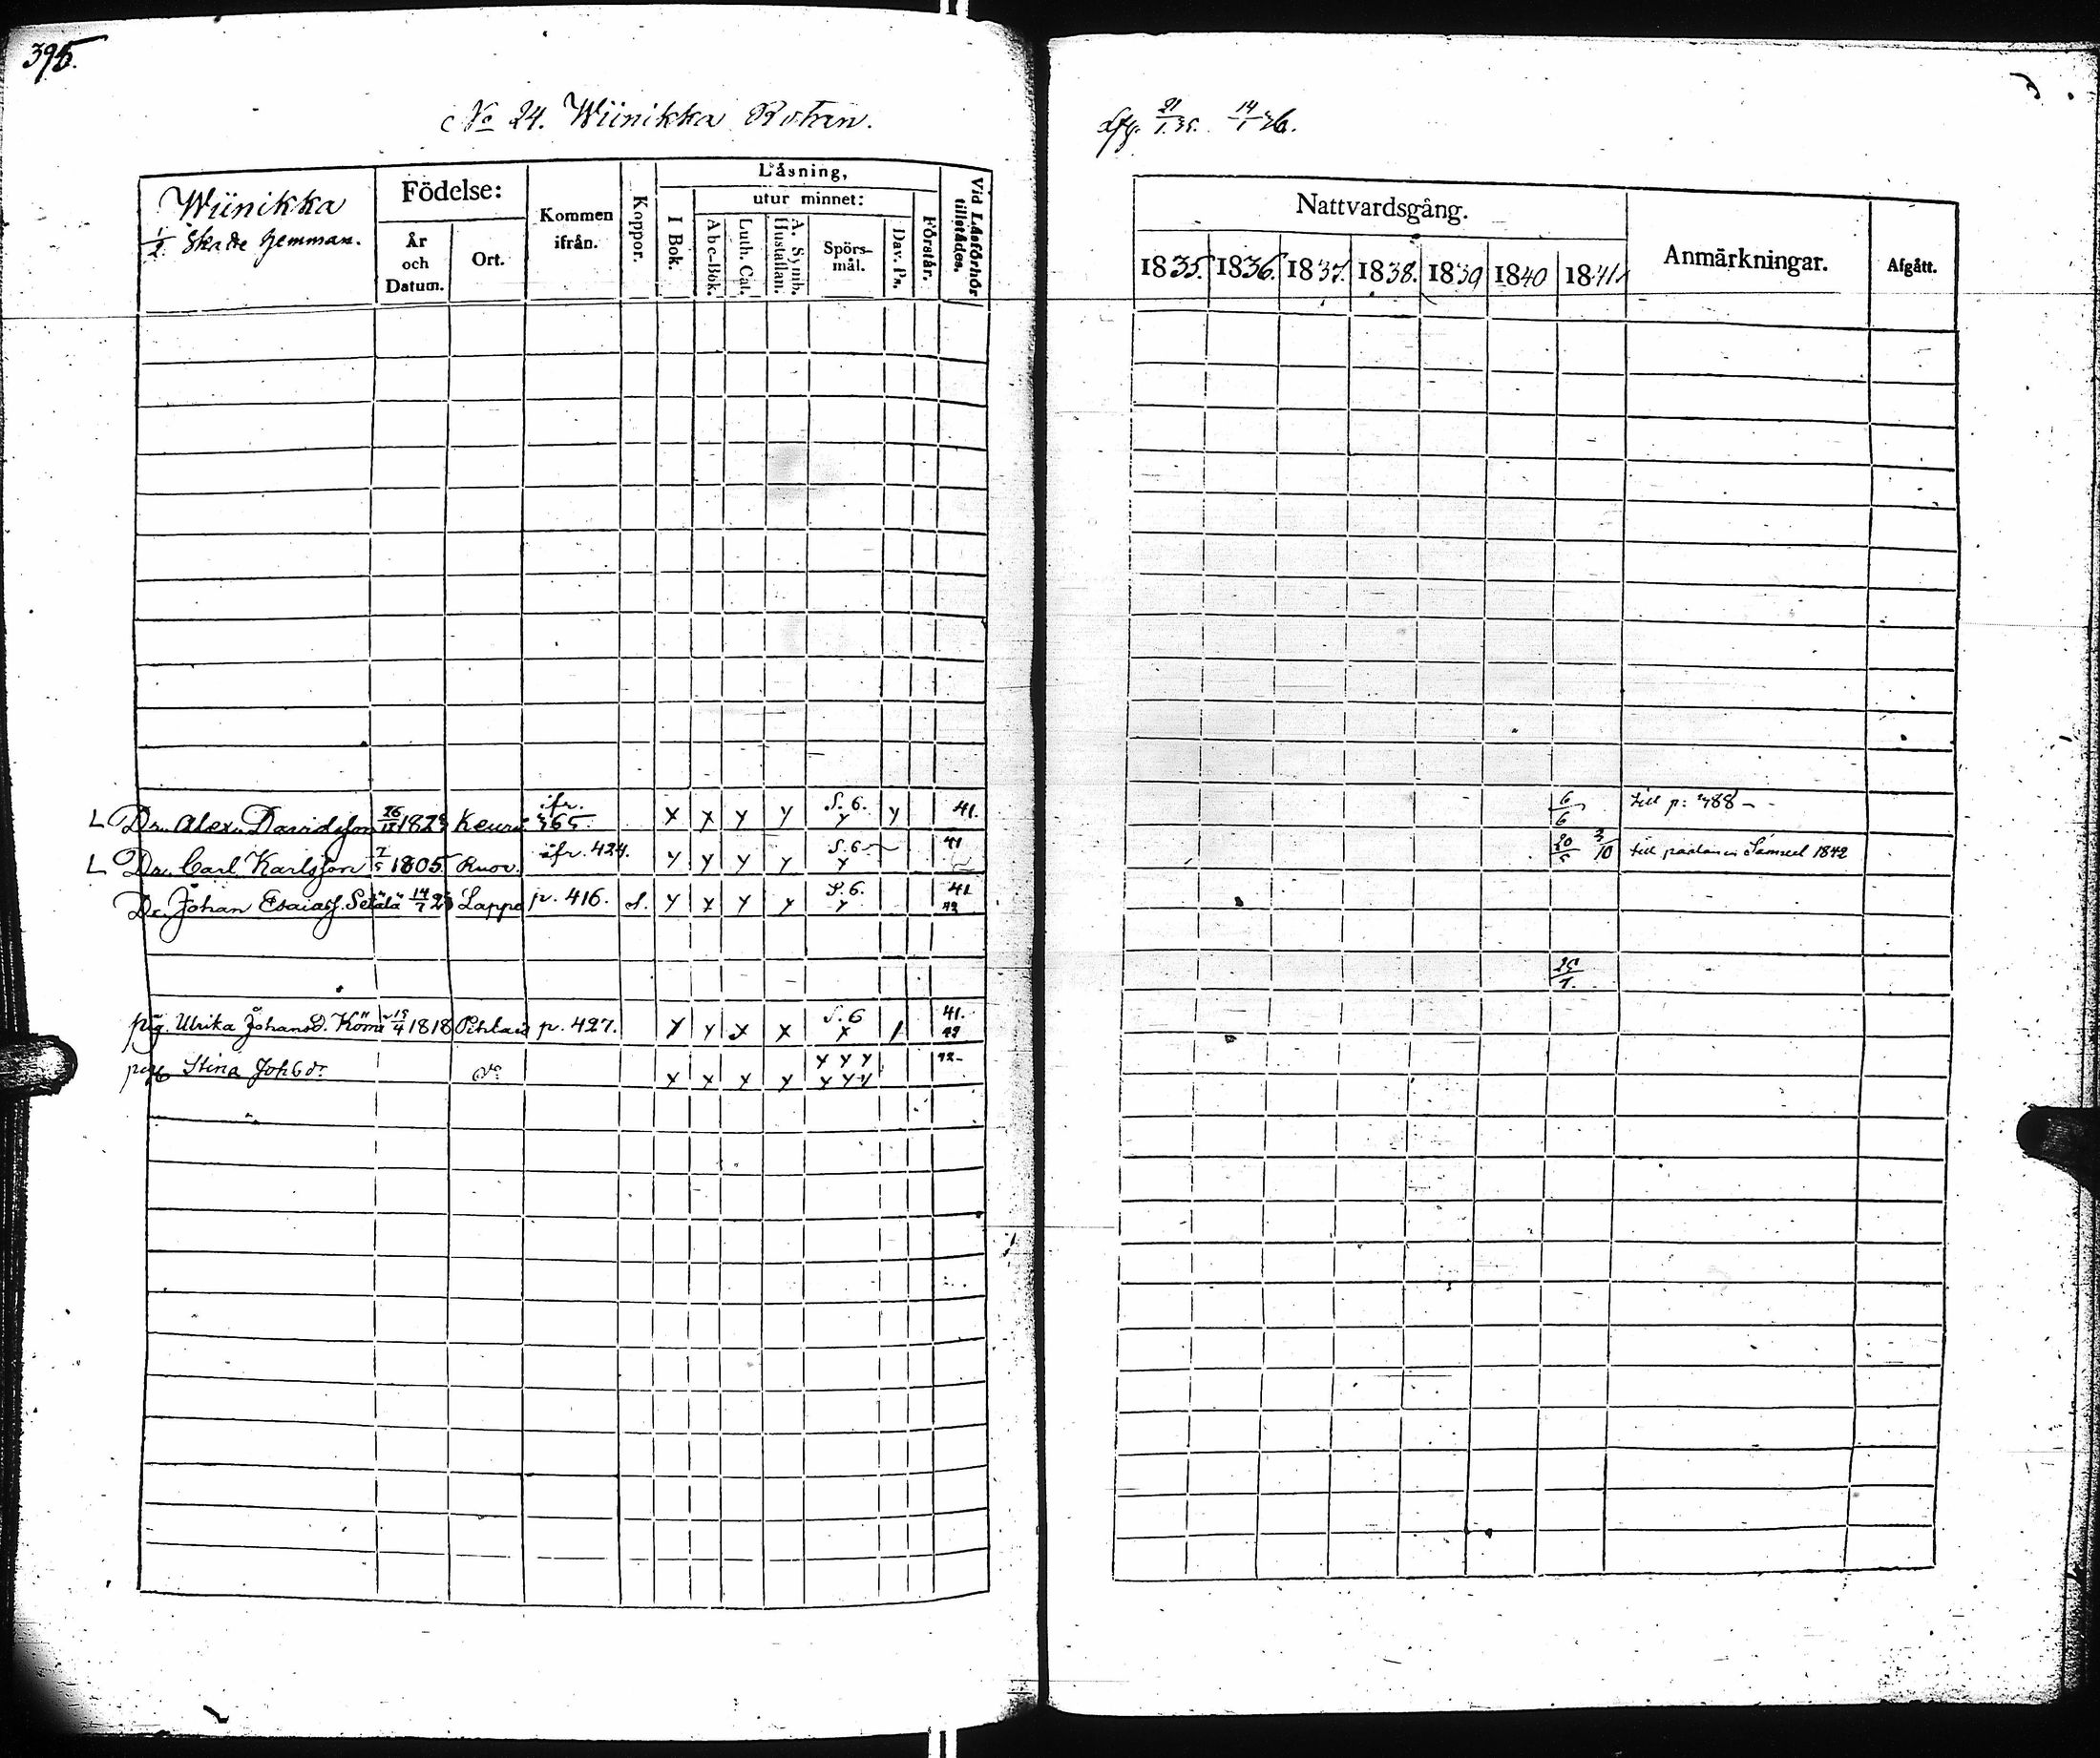 395.
No 24. Wiinikka Rotan.
Wiinikka
1/2 Skatte hemman.
Födelse:
År och Datum.
Ort.
Kommen ifrån.
Koppor.
Läsning,
I Bok.
utur minnet:
Abc-Bok.
Luth. Cat.
A. Symb. Hustaflan.
Spörs-mål.
Dav. Ps.
Förstår.
Vid Läsförhör tillstädes.
L Dr. Alex. Davidsson 1823 Keuru ifr. 365. x x y y S. 6. y y 41.
L Dr. Carl Karlsson 7/5 1805 Ruov. ifr. 424. y y y y S. 6 y 41
Dr. Johan Esaiass. Setälä 14/7 23 Lappo p. 416. y x y y S. 6. y 41 42
pig. Ulrika Johansd. 1818 Pihlais p. 427. y y x x S. 6 x / 41. 42
Stina Johsdr x x x y y y y x y y 42-
21/1 35. 14/1 36.
Nattvardsgång.
1835. 1836. 1837. 1838. 1839 1840 1841
Anmärkningar.
Afgått.
6/6 till p: 488
20/5 3/10 till Samuel 1842
25/7.